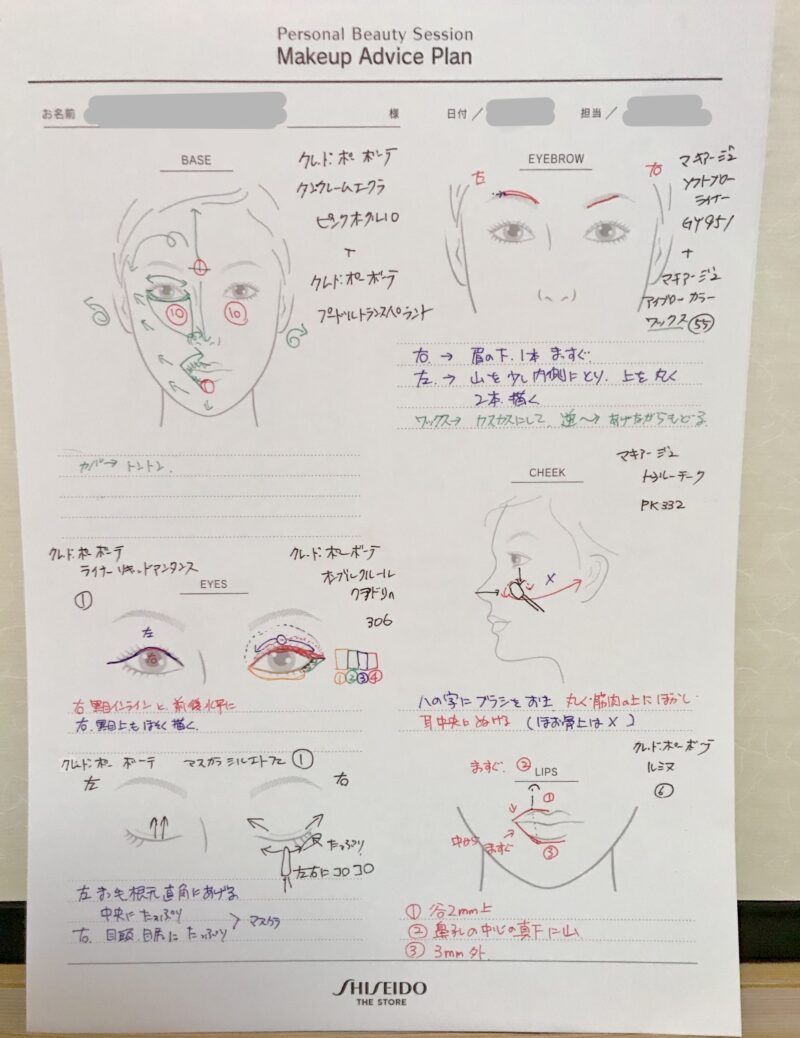 Personal Beauty Session
Makeup Advice Plan
お名前
様
日付／
担当／
BASE
クレ・ド・ポー ボーテ
ピンクオークル10
+
クレ・ド・ポー ボーテ
プードルトランスペラント
10
10
カバー→ トントン
EYEBROW
左
右
マキアージュ
ソフトブロー
ライナー
GY951
+
マキアージュ
アイブローカラー
ワックス 55
右 → 眉の下、1本 まっすぐ
左 → 山を少し内側にとり、上を丸く
2本 描く
ワックス→ カスカスにして、逆〜→ あげながらもどる
CHEEK
マキアージュ
トゥルーチーク
PK332
X
ハの字にブラシをおき 丸く筋肉の上にぼかし
耳中央にぬける (ほお骨上は×)
クレ・ド・ポー ボーテ
①
EYES
クレ・ド・ポー ボーテ
306
左
① ② ③ ④
右 黒目インラインと 前後水平に
右 黒目上もほそく描く
クレ・ド・ポー ボーテ マスカラ ①
左
右
たっぷり
左右にコロコロ
中央にたっぷり
右 目頭、目尻にたっぷり
マスカラ
LIPS
クレ・ド・ポー ボーテ
⑥
まっすぐ ②
①
中から
まっすぐ
③
① 谷2mm上
② 鼻孔の中心の真下に山
③ 3mm外
SHISEIDO
THE STORE